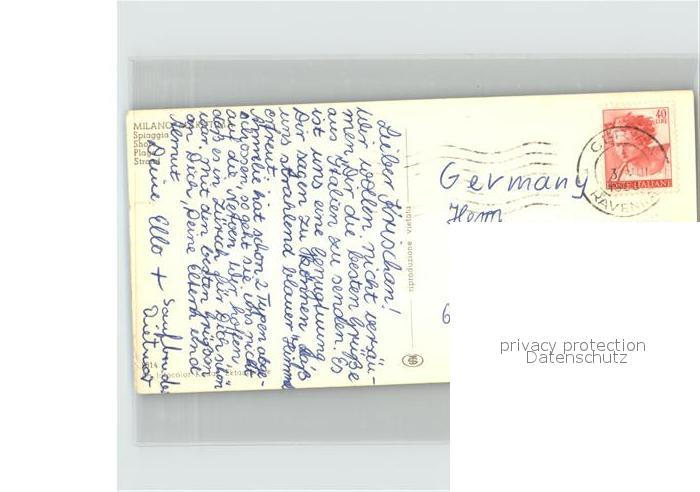 MILANO
Spiaggia
Lieber Krischan!
Wir wollen nicht versäu-
men, Dir die besten Grüße
aus Italien zu senden. Es
ist uns eine Genugtuung
Dir sagen zu können, daß
uns strahlend blauer Himmel
erfreut.
hat schon 2 Typen abge-
so geht sie uns nicht
auf die Nerven. Wir hoffen,
daß es in Zürich für Dich schön
war. Mit den besten Grüßen
an Dich, Deine Eltern und
Deine Ello +
riproduzione vietata
40
LIRE
POSTE ITALIANE
RAVENNA
Germany
Herrn
6
privacy protection
Datenschutz